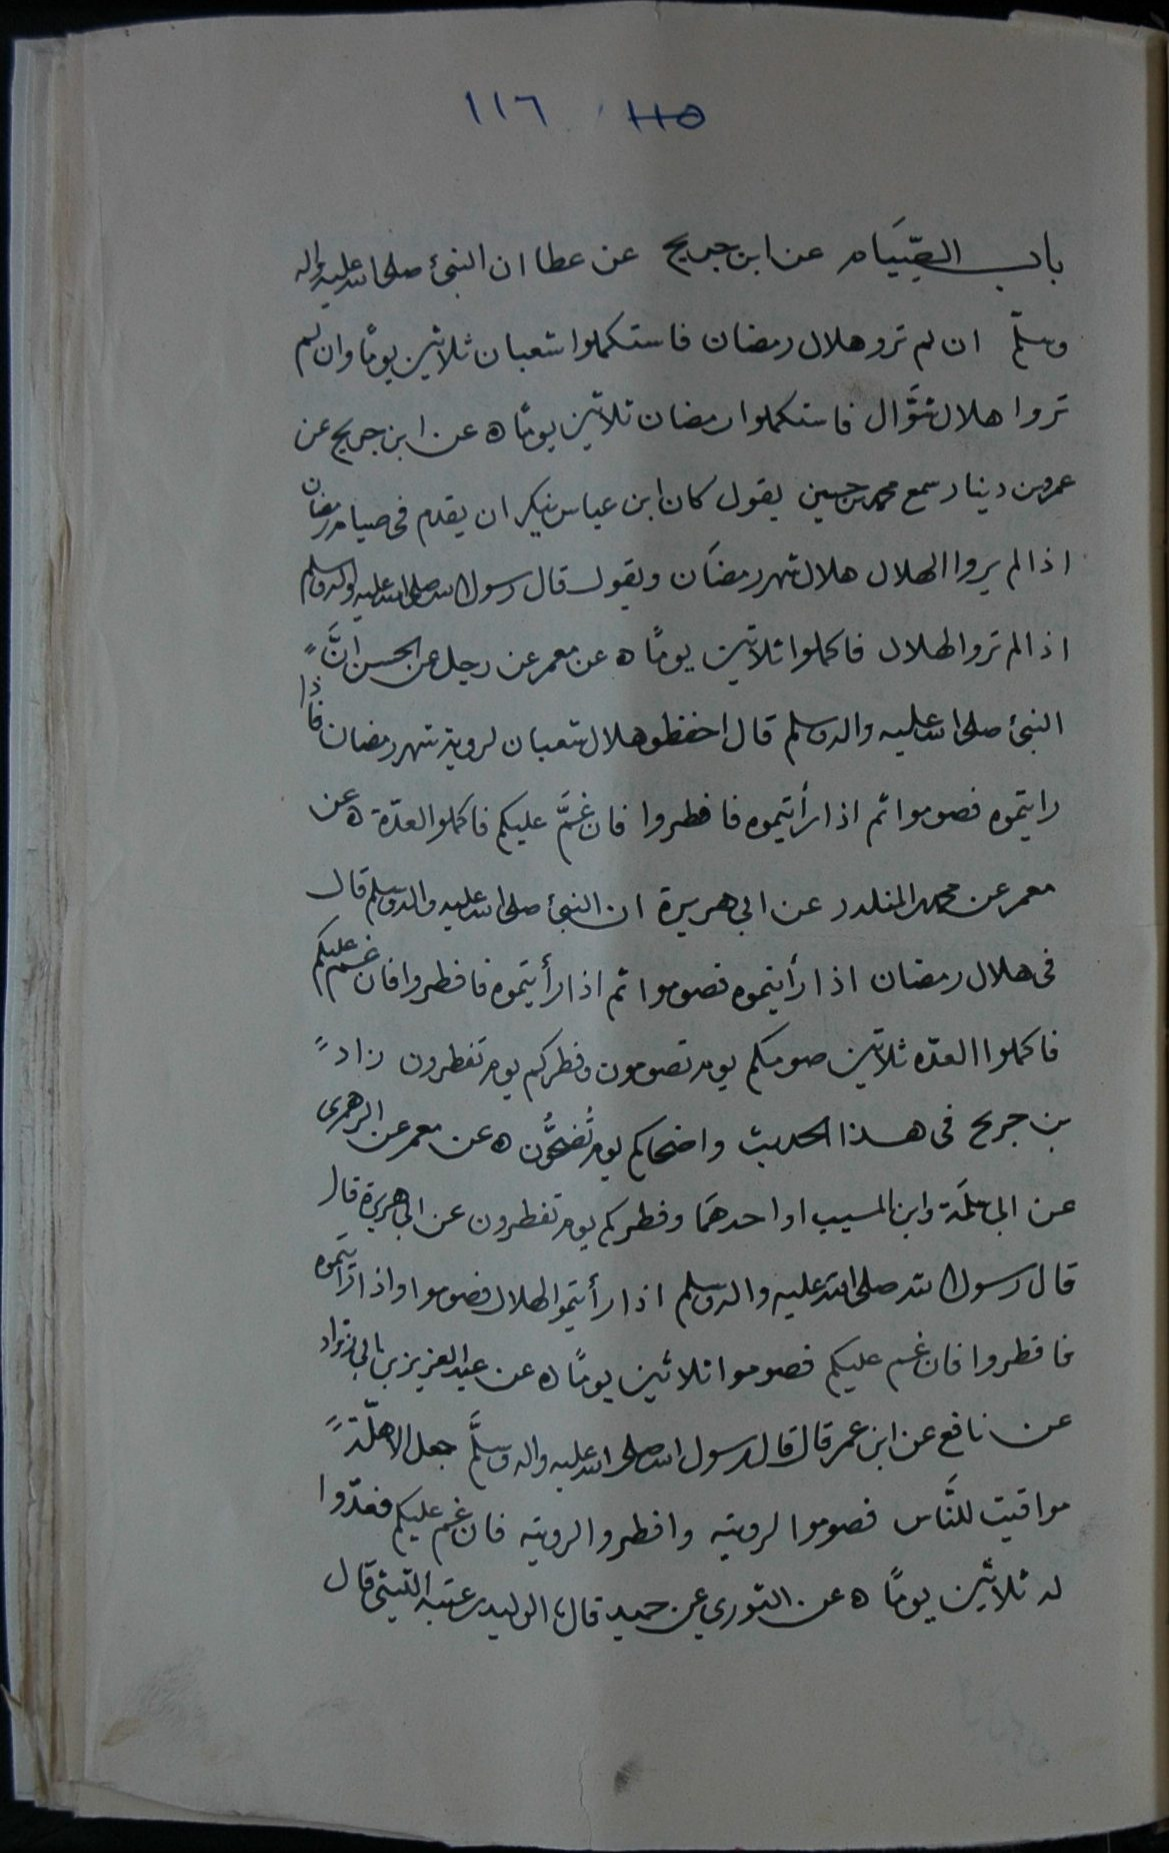 ١١٥ ١١٦
باب الصِّيَام عن ابن جريج عن عطا ان النبئ صلى الله عليه واله
وسلّم ان لم ترو هلال رمضان فاستكملوا شعبان ثلاثين يومًا وان لم
تروا هلال شوَّال فاستكملوا رمضان ثلاثين يومًا ه عن ابن جريج عن
عمرو بن دينار سمع محمد بن حسين يقول كان ابن عباس ينكر ان يقدم فى صيام رمضان
اذا لم يروا الهلال هلال شهر رمضَان ويقول قال رسول الله صلى الله عليه واله وسلم
اذا لم تروا الهلال فاكملوا ثلاثين يومًا ه عن معمر عن رجل عن الحسن انَّ
النبئ صلى الله عليه واله وسلم قال احفظو هلال شعبان لروية شهر رمضان فاذا
رايتموه فصوموا ثم اذا رأيتموه فافطروا فان غمَّ عليكم فاكملوا العدّة ه عن
معمر عن محمد المنكدر عن ابى هريرة ان النبئ صلى الله عليه واله وسلم قال
فى هلال رمضان اذا رأيتموه فصوموا ثم اذا رأيتموه فافطروا فان غم عليكم
فاكملوا العدّه ثلاثين صومكم يوم تصومون وفطركم يوم تفطرون زاد
بن جريج فى هذا الحديث واضحاكم يوم تُضحُّون ه عن معمر عن الزهرى
عن ابى سلمَة وابن المسيب او احدهمَا وفطركم يوم تفطرون عن ابى هريرة قال
قال رسول الله صلى الله عليه واله وسلم اذا رأيتموا الهلال فصوموا واذا رأيتموه
فافطروا فان غم عليكم فصوموا ثلاثين يومًا ه عن عبد العزيز بن ابى رواد
عن نافع عن ابن عمر قال قال رسول الله صلى الله عليه واله وسلَّم جعل الاهلّة
مواقيت للنَّاس فصوموا لرويته وافطروا لرويته فان غم عليكم فعدّوا
له ثلاثين يومًا ه عن الثورى عن حميد قال الوليد بن عتبه الليثى قال